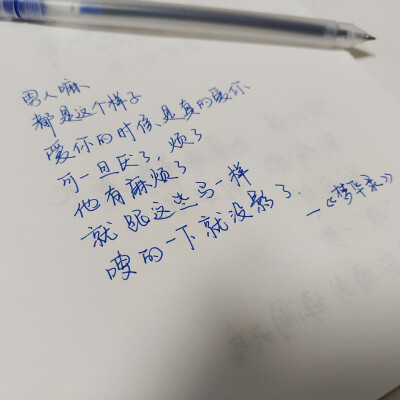 男人嘛
都是这个样子
爱你的时候、是真的爱你
可一旦厌了，烦了
他有麻烦了
就跟这些马一样
嗖的一下就没影了.
—《梦华录》